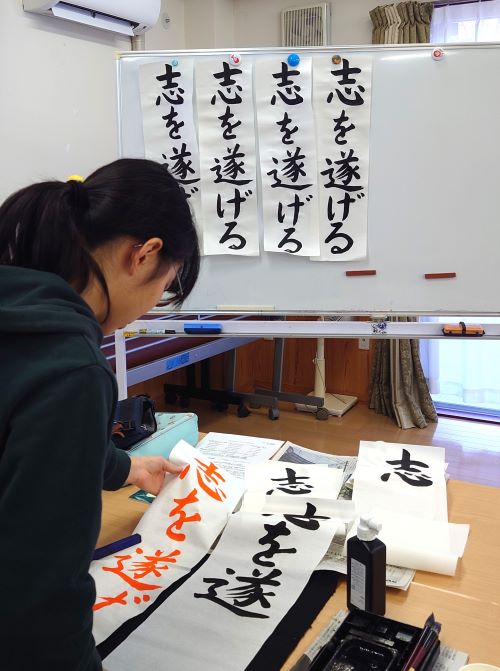 志を遂げる
志を遂げる
志を遂げる
志を遂げる
志を遂げ
志
志
を遂